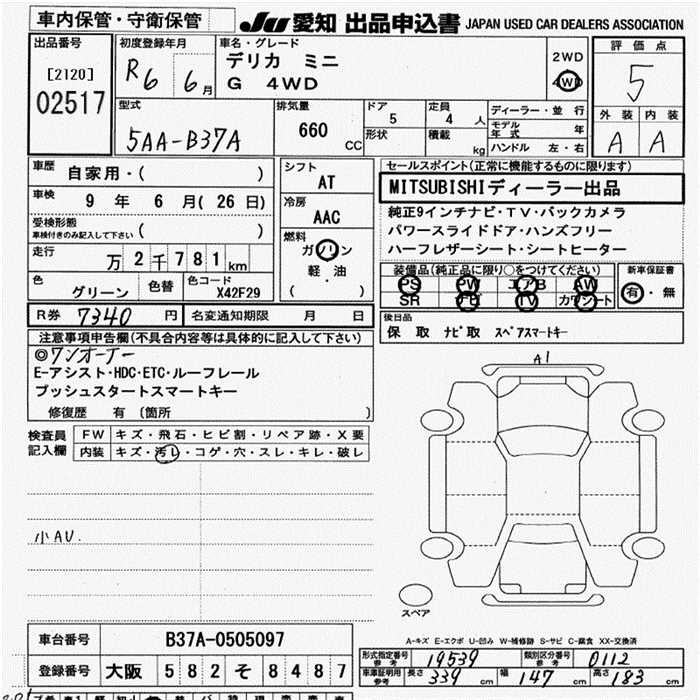 車内保管・守衛保管
JU 愛知 出品申込書 JAPAN USED CAR DEALERS ASSOCIATION
出品番号
[2120]
02517
初度登録年月
R6 6月
車名・グレード
デリカ ミニ
G 4WD
2WD
4WD
評価点
5
外装 内装
A A
型式
5AA-B37A
排気量
660 CC
ドア
5
形状
定員
4 人
積載 kg
ディーラー・並行
モデル年式 年
ハンドル 左・右
車歴
自家用・( )
車検
9 年 6 月 ( 26 日)
受検形態
車検付きのみ記入して下さい ( )
走行
万 2 千 7 8 1 km
色
グリーン
色替
色コード
X42F29
シフト
AT
冷房
AAC
燃料
ガソリン
軽・油
( )
セールスポイント(正常に機能するものに限ります)
MITSUBISHIディーラー出品
純正9インチナビ・TV・バックカメラ
パワースライドドア・ハンズフリー
ハーフレザーシート・シートヒーター
装備品(純正品に限り○をつけてください)
PS PW エアB AW
SR ナビ TV カワシート
新車保証書
有・無
R券 7340 円
名変通知期限 月 日
後日品
保 取 ナビ取 スペアスマートキー
注意事項申告欄(不具合内容等は具体的に記入して下さい)
◎ワンオーナー
E-アシスト・HDC・ETC・ルーフレール
プッシュスタートスマートキー
修復歴 有 〔箇所 〕
検査員
記入欄
FW キズ・飛石・ヒビ割・リペア跡・X要
内装 キズ・汚レ・コゲ・穴・スレ・キレ・破レ
小AU.
A1
スペア
A-キズ E-エクボ U-凹み W-補修跡 S-サビ C-腐食 XX-交換済
車台番号 B37A-0505097
登録番号 大阪 5 8 2 そ 8 4 8 7
形式指定番号 参考 19539
類別区分番号 参考 0112
車庫証明用 参考 長さ 339 cm 幅 147 cm 高さ 183 cm